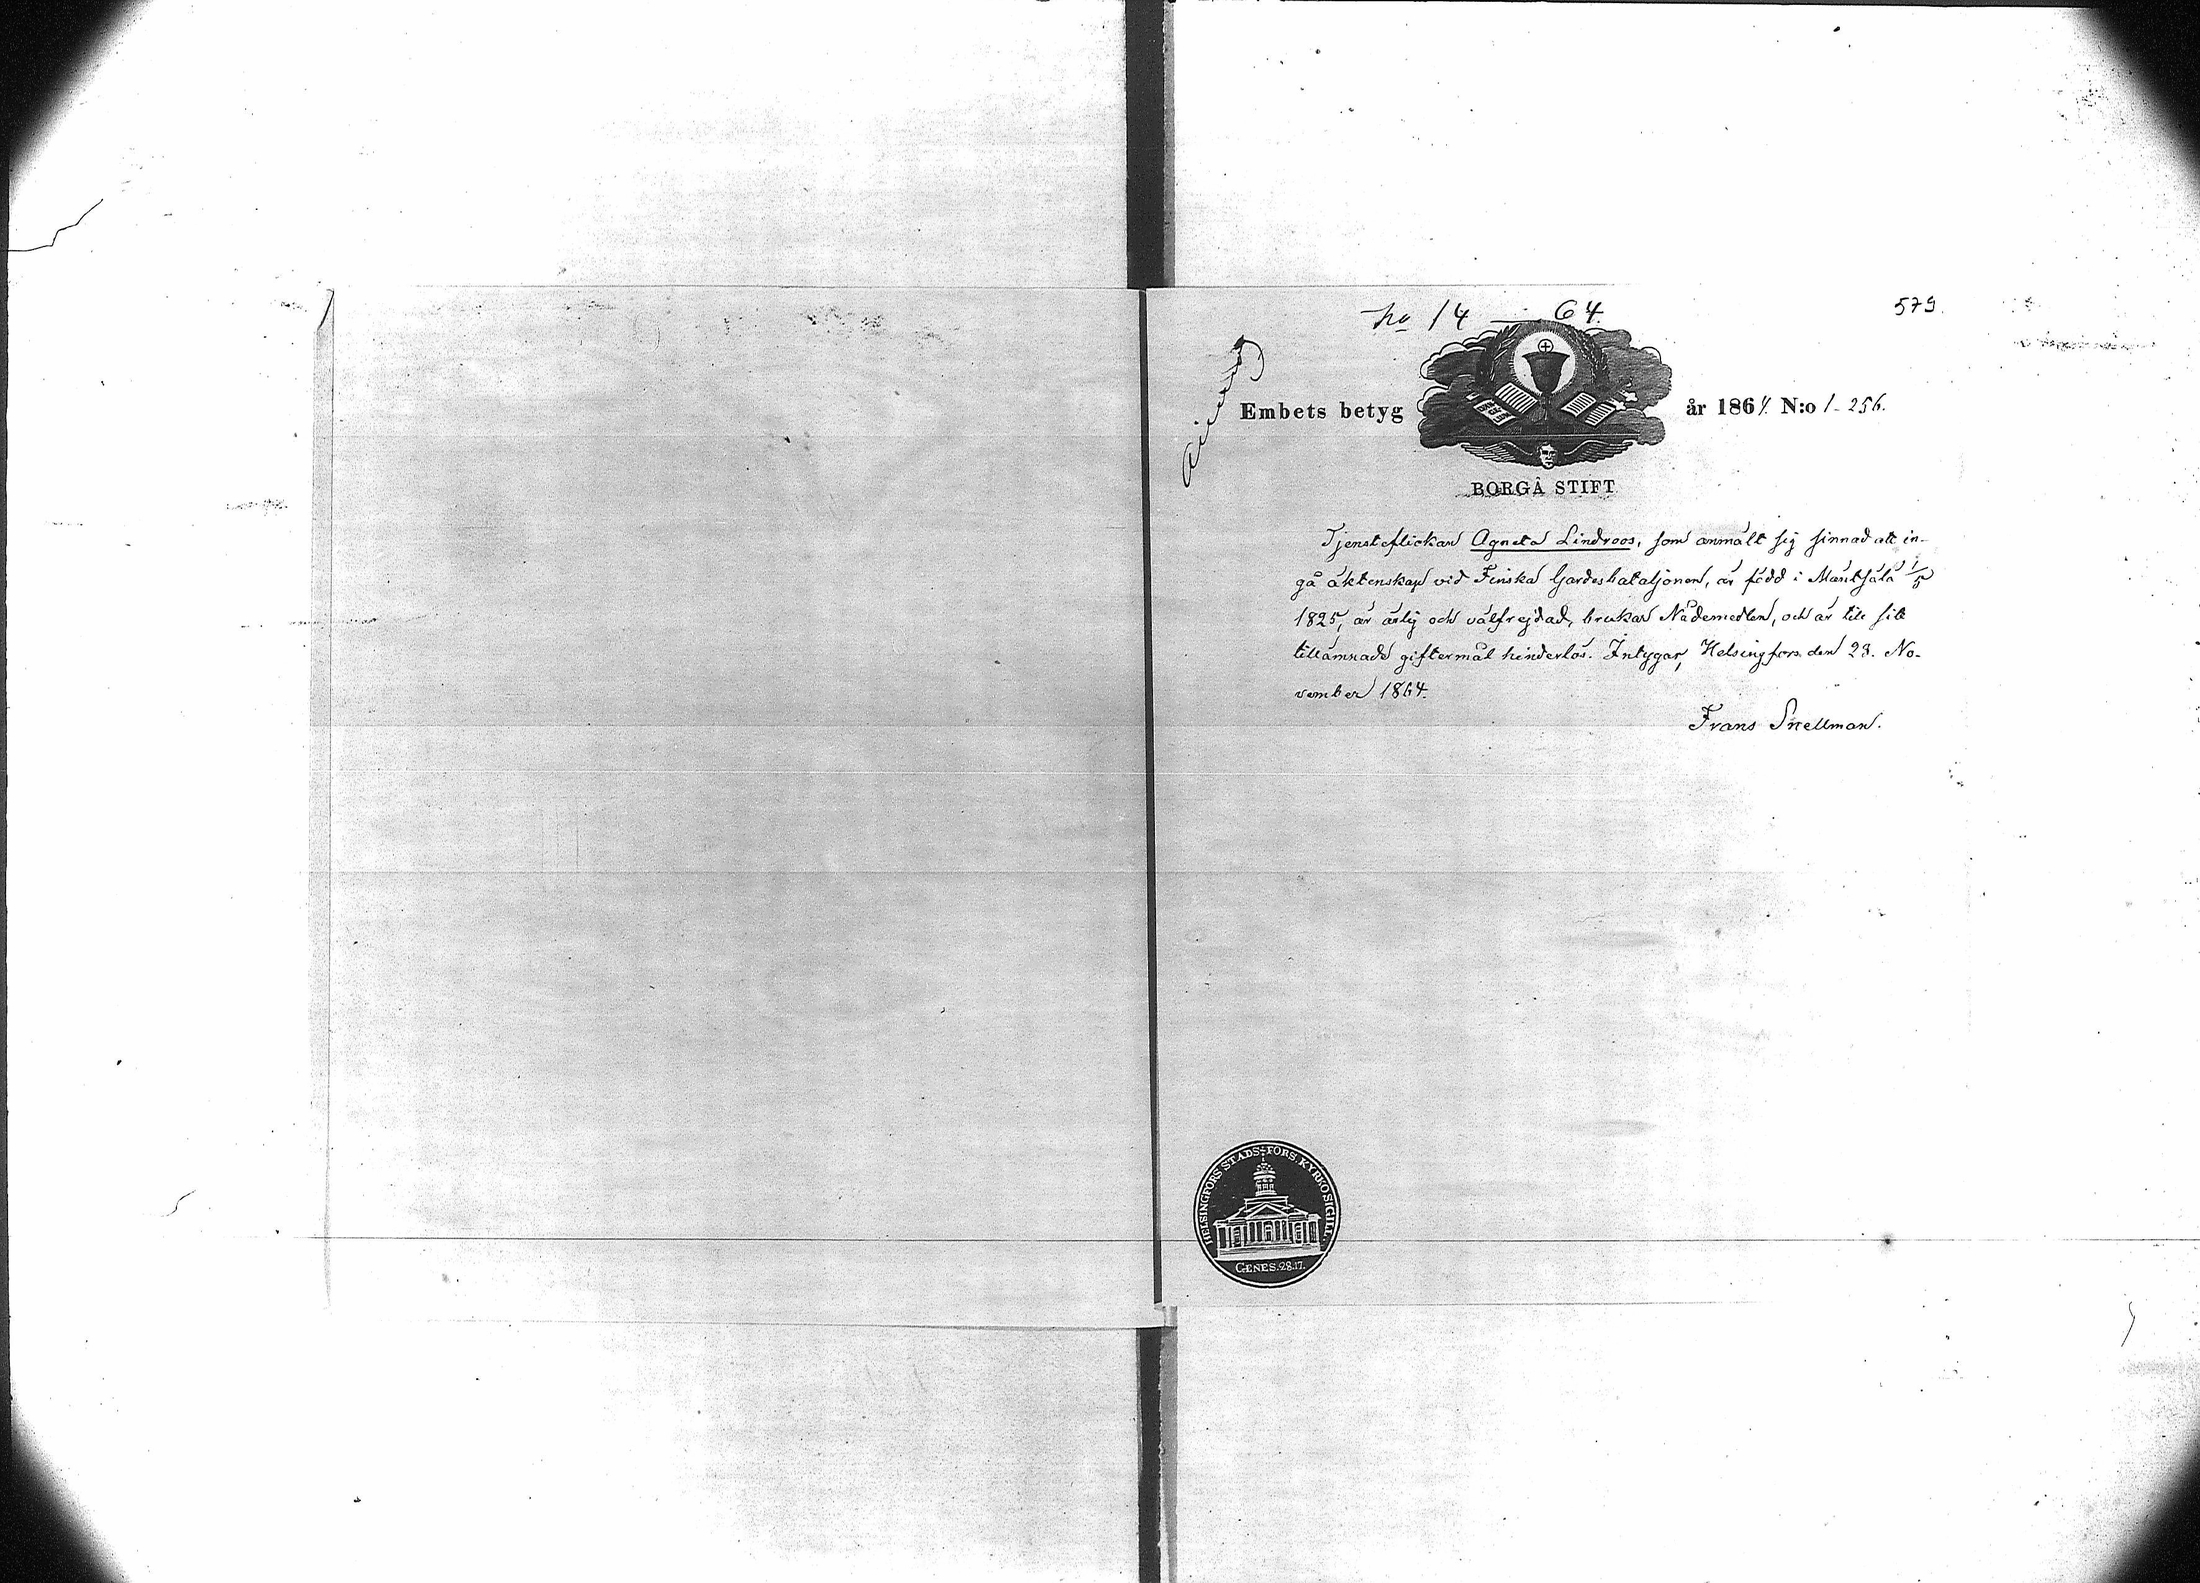 No 14 — 64.
579.
Embets betyg
år 1864. N:o 1-256.
BORGÅ STIFT
Tjensteflickan Agneta Lindroos, som anmält sig sinnad att in-
gå äktenskap vid Finska Gardesbataljonen, är född i Mäntsälä 1/5
1825, är ärlig och välfrejdad, brukar Nådemedlen, och är till sitt
tillämnade giftermål hinderlös. Intygar, Helsingfors den 23. No-
vember 1864.
Frans Snellman.
HELSINGFORS STADS-FÖRS. KYRKOSIGILL.
GENES.28.17.